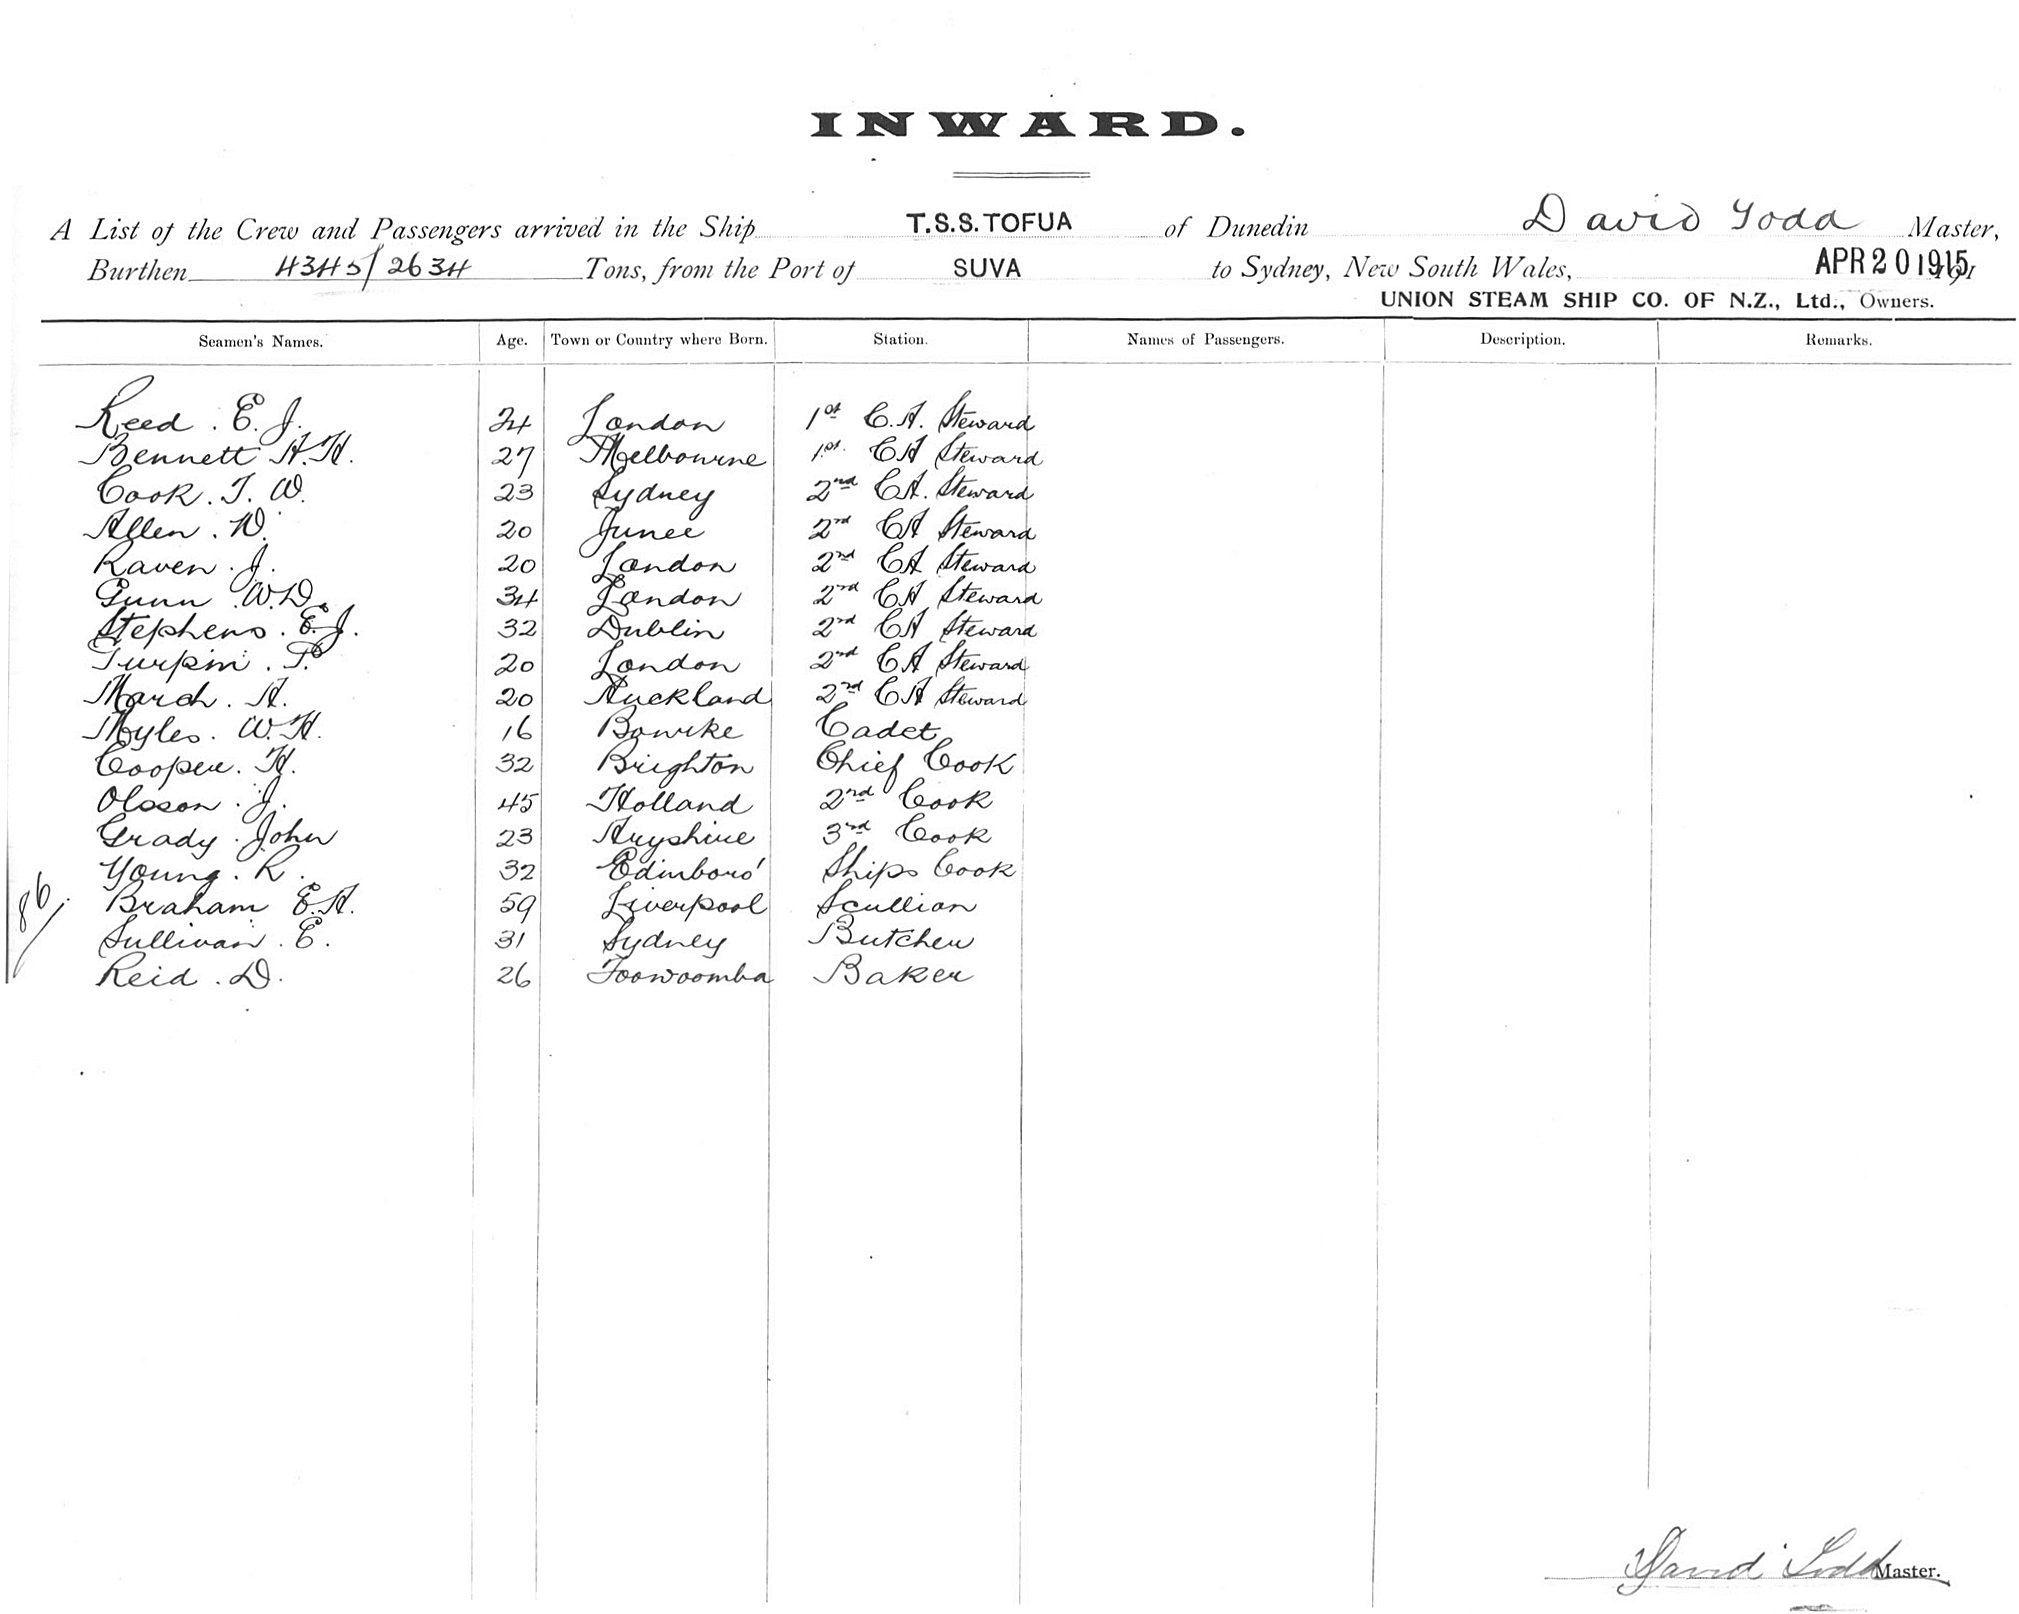 INWARD.
A List of the Crew and Passengers arrived in the Ship T.S.S. TOFUA of Dunedin David Todd Master,
Burthen 4345/2634 Tons, from the Port of SUVA to Sydney, New South Wales, APR 20 1915 191
UNION STEAM SHIP CO. OF N.Z., Ltd., Owners.
Seamen's Names. Age. Town or Country where Born. Station. Names of Passengers. Description. Remarks.
Reed. E. J. 24 London 1st C.A. Steward
Bennett H.H. 27 Melbourne 1st. CA Steward
Cook. T. W. 23 Sydney 2nd CA. Steward
Allen. W. 20 Junee 2nd CA Steward
Raven. J. 20 London 2nd CA Steward
Gunn W.D. 34 London 2nd CA Steward
Stephens. E.J. 32 Dublin 2nd CA Steward
Turpin. T. 20 London 2nd CA Steward
March. A. 20 Auckland 2nd CA Steward
Myles. W.H. 16 Cadet
Cooper. H. 32 Brighton Chief Cook
Olsson. J. 45 Holland 2nd Cook
Grady. John 23 Aryshire 3rd Cook
Young. R. 32 Edinboro' Ships Cook
86. Braham E.A. 59 Liverpool Scullion
Sullivan. E. 31 Sydney Butcher
Reid. D. 26 Toowoomba Baker
David Todd Master.